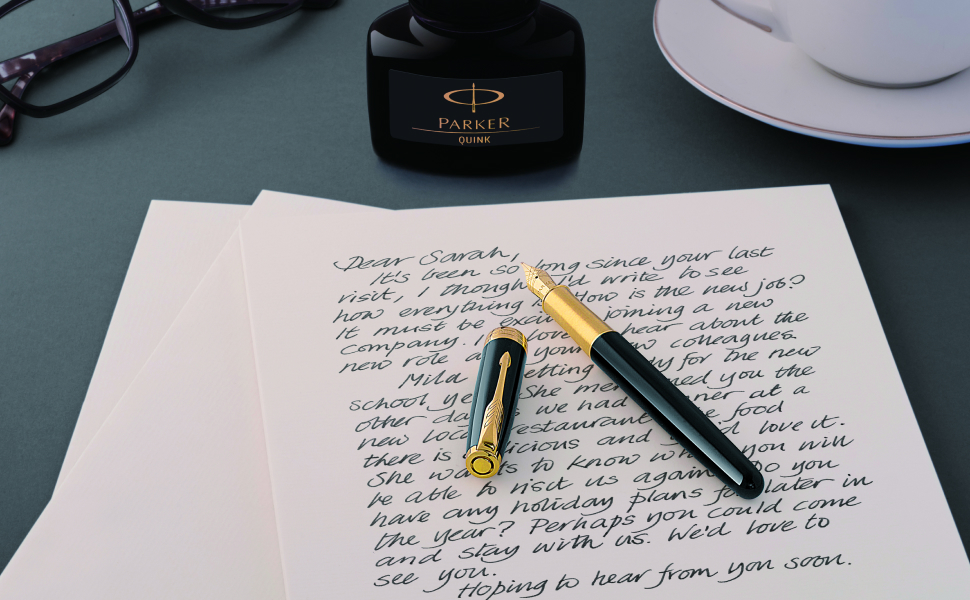 PARKER
QUINK
Dear Sarah,
It's been so long since your last
visit, I though I'd write to see
how everything How is the new job?
It must be exci joining a new
company. I love hear about the
new role a your w colleagues.
Mila etting y for the new
school ye She men ned you the
other da we had ner at a
new loc restaurant e food
there is icious and d love it.
She wa ts to know wh you will
be able to visit us again. Do you
have any holiday plans fo later in
the year? Perhaps you could come
and stay with us. We'd love to
see you.
Hoping to hear from you soon.